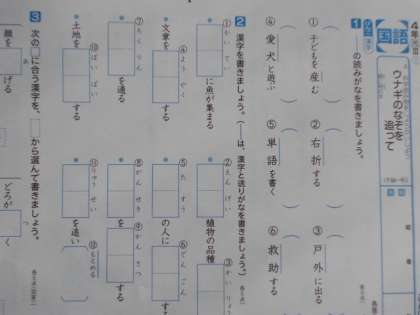 4年
国語
ウナギのなぞを
追って
1 漢字の読みがなを書きましょう。
① 子どもを産む
② 右折する
③ 戸外に出る
④ 愛犬と遊ぶ
⑤ 単語を書く
⑥ 救助する
2 漢字を書きましょう。(――は、漢字と送りがなを書きましょう。)
① かいてい
に魚が集まる
② えんげい
植物の品種
③ かいりょう
する
文章を
④ ようやく
する
⑤ たすう
の人に
⑥ でんごん
する
⑦ りくりん
を通る
⑧ がんせき
を
⑨ かんさつ
する
土地を
⑩ ばいばい
する
⑪ りゅうせい
を追い
⑫ もとめる
3 次の□に合う漢字を、
から選んで書きましょう。
顔を
あ
げる
どろが
つ
く